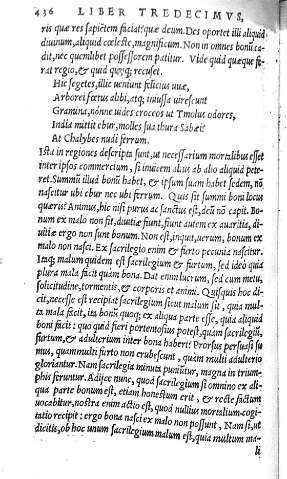 436 LIBER TREDECIMVS,
ris quæ res sapiẽtem faciat? quæ deum. Des oportet illi aliquid
diuinum, aliquid cœleste, magnificum. Non in omnes bonũ ca-
dit, nec quemlibet possessorem patitur. Vide quid quæque fe-
rat regio, & quid quęq; recuset.
Hic segetes, illic ueniunt felicius uuæ,
Arborei fœtus alibi, atq; iniussa uirescunt
Gramina, nónne uides croceos ut Tmolus odores,
India mittit ebur, molles sua thura Sabæi?
At Chalybes nudi ferrum.
Ista in regiones descripta sunt, ut necessarium mortalibus esset
inter ipsos commercium, si inuicem alius ab alio aliquid pete-
ret. Summũ illud bonũ habet, & ipsum suam habet sedem, nõ
nascitur ubi ebur nec ubi ferrum. Quis sit summi boni locus
quæris? Animus, hic nisi purus ac sanctus est, deũ nõ capit. Bo-
num ex malo non fit, diuitiæ fiunt, fiunt autem ex auaritia, di-
uitiæ ergo nõn sunt bonum. Non est, inquit, uerum, bonum ex
malo non nasci. Ex sacrilegio enim & furto pecunia nascitur.
Itaq; malum quidem est sacrilegium & furtum, sed ideò quia
plura mala facit quàm bona. Dat enim lucrum, sed cum metu,
solicitudine, tormentis, & corporis et animi. Quisquis hoc di-
cit, necesse est recipiat sacrilegium sicut malum sit, quia mul-
ta mala facit, ita bonũ quoq; ex aliqua parte esse, quia aliquid
boni facit: quo quid fieri portentosius potest, quàm sacrilegiũ,
furtum, & adulterium inter bona haberi? Prorsus persuasi su
mus, quàm multi furto non erubescunt, quàm multi adulterio
gloriantur. Nam sacrilegia minuta puniũtur, magna in trium-
phis feruntur. Adijce nunc, quod sacrilegium si omnino ex ali-
qua parte bonum est, etiam honestum erit, & rectè factum
uocabitur, nostra enim actio est, quod nullius mortalium cogi-
tatio recipit: ergo bona nasci ex malo non possunt. Nam si, ut
dicitis, ob hoc unum sacrilegium malum est, quia multum ma-
li